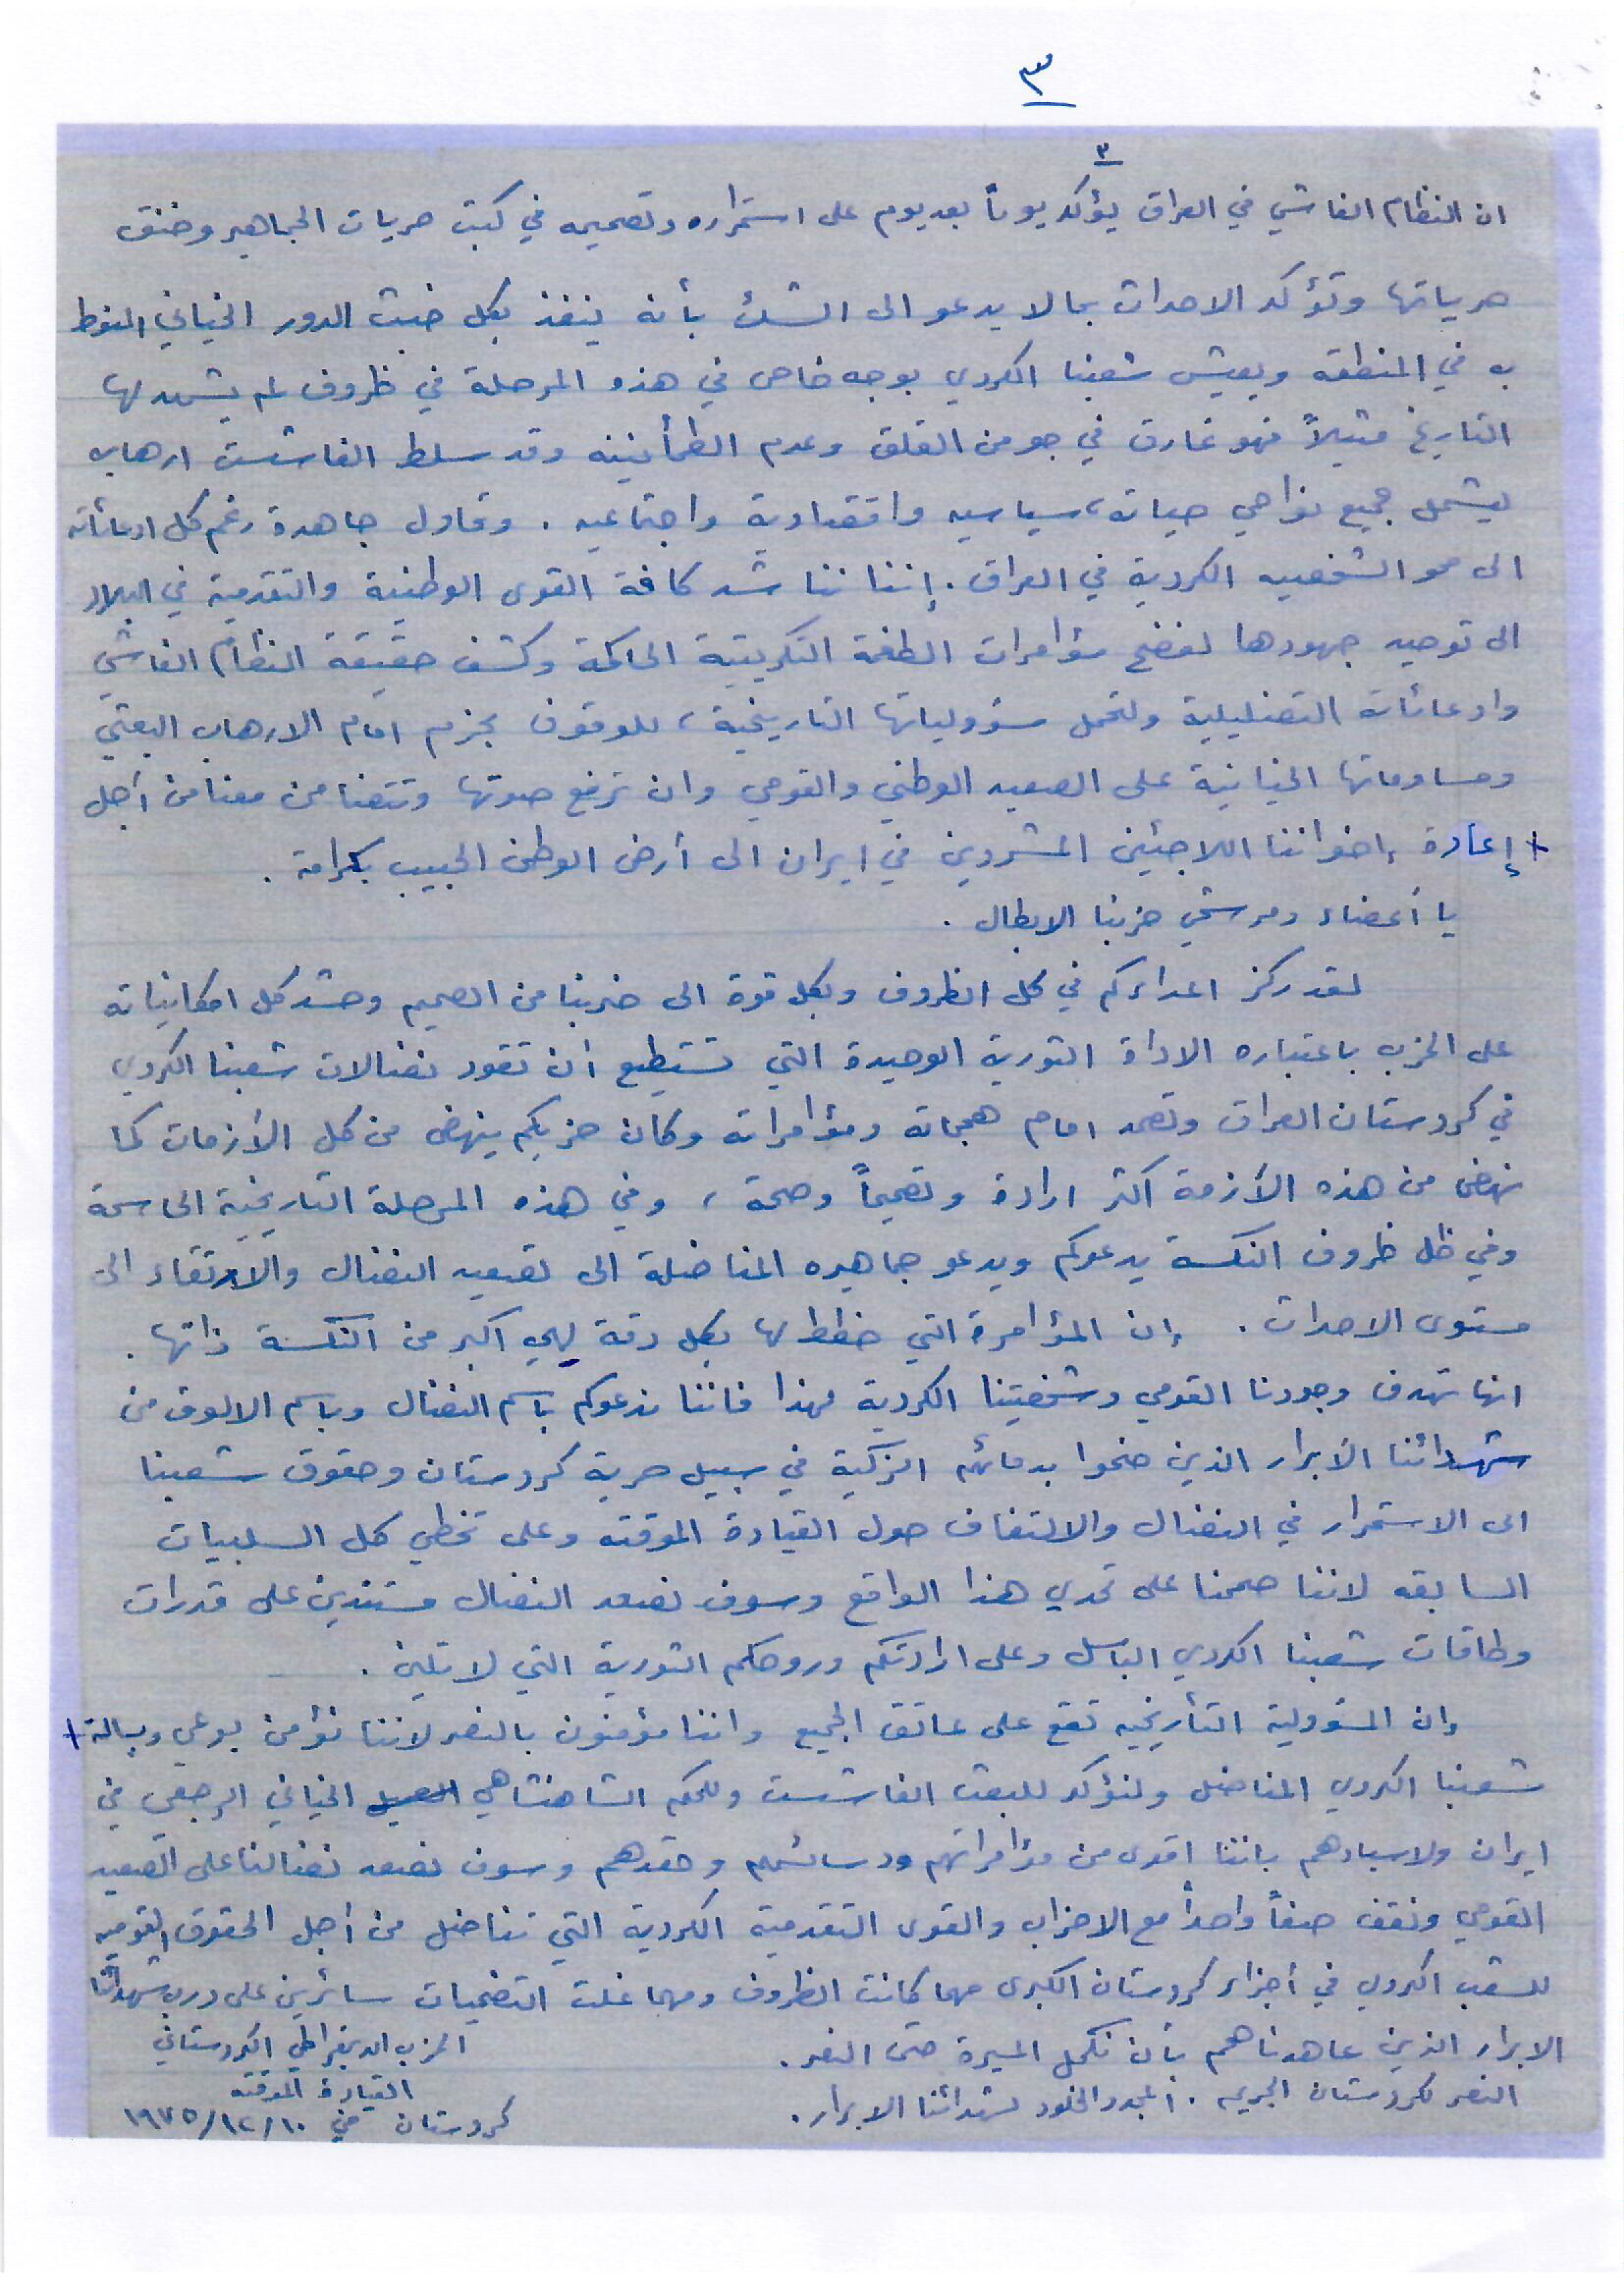 ٣
٣
ان النظام الفاشي في العراق يؤكد يوماً بعد يوم على استمراره وتصميمه في كبت حريات الجماهير وخنق
حرياتها وتؤكد الاحداث بما لا يدعو الى الشك بأنه ينفذ بكل خبث الدور الخياني المنوط
به في المنطقه ويعيش شعبنا الكردي بوجه خاص في هذه المرحلة في ظروف لم يشهد لها
التاريخ مثيلاً فهو غارق في جو من القلق وعدم الطمأنينه وقد سلط الفاشست ارهابه
ليشمل جميع نواحي حياته، سياسيه واقتصادية واجتماعيه . وتحاول جاهدة رغم كل ادعائاته
الى محو الشخصيه الكردية في العراق . إننا نناشد كافة القوى الوطنية والتقدمية في البلاد
الى توحيد جهودها لفضح مؤامرات الطغمة التكريتية الحاكمة وكشف حقيقة النظام الفاشي
وادعائاته التضليلية ولتحمل مسؤولياتها التاريخية ، للوقوف بحزم امام الارهاب البعثي
ومساوماتها الخيانية على الصعيد الوطني والقومي وان ترفع صوتها وتتضامن معنا من أجل
+ إعادة إخواننا اللاجئين المشردين في ايران الى أرض الوطن الحبيب بكرامة .
يا أعضاء ومرشحي حزبنا الابطال .
لقد ركز اعداءكم في كل الظروف وبكل قوة الى ضربنا من الصميم وحشد كل امكانياته
على الحزب باعتباره الاداة الثورية الوحيدة التي تستطيع أن تقود نضالات شعبنا الكردي
في كردستان العراق وتصمد امام هجماته ومؤامراته وكان حزبكم ينهض من كل الأزمات كما
نهض من هذه الأزمة أكثر ارادة وتصميماً وصحة ، وفي هذه المرحلة التاريخية الحاسمة
وفي ظل ظروف النكسة يدعوكم ويدعو جماهيره المناضلة الى تصعيد النضال والارتقاء الى
مستوى الاحداث . إن المؤامرة التي خطط لها بكل دقة لهي اكبر من النكسة ذاتها .
انها تهدف وجودنا القومي وشخصيتنا الكردية لهذا فاننا ندعوكم باسم النضال وباسم الالوف من
شهدائنا الأبرار الذين ضحوا بدمائهم الزكية في سبيل حرية كردستان وحقوق شعبنا
الى الاستمرار في النضال والالتفاف حول القيادة الموقته وعلى تخطي كل السلبيات
السابقه لاننا صممنا على تحدي هذا الواقع وسوف نصعد النضال مستندين على قدرات
وطاقات شعبنا الكردي الباسل وعلى ارادتكم وروحكم الثورية التي لا تلين .
وان المسؤولية التأريخيه تقع على عاتق الجميع واننا مؤمنون بالنصر لاننا نؤمن بوعي وبسالة +
شعبنا الكردي المناضل ولنؤكد للبعث الفاشست وللحكم الشاهنشاهي الخياني الرجعي في
ايران ولاسيادهم باننا اقوى من مؤامراتهم ودسائسهم وحقدهم وسوف نصعد نضالنا على الصعيد
القومي ونقف صفاً واحداً مع الاحزاب والقوى التقدمية الكردية التي تناضل من أجل الحقوق القوميه
للشعب الكردي في أجزاء كردستان الكبرى مهما كانت الظروف ومهما غلت التضحيات سائرين على درب شهدائنا
الابرار الذين عاهدناهم بأن نكمل المسيرة حتى النصر .
النصر لكردستان الجريحه . المجد والخلود لشهدائنا الابرار .
الحزب الديمقراطي الكردستاني
القيادة الموقته
كردستان في ١٩٧٥/١٢/١٠